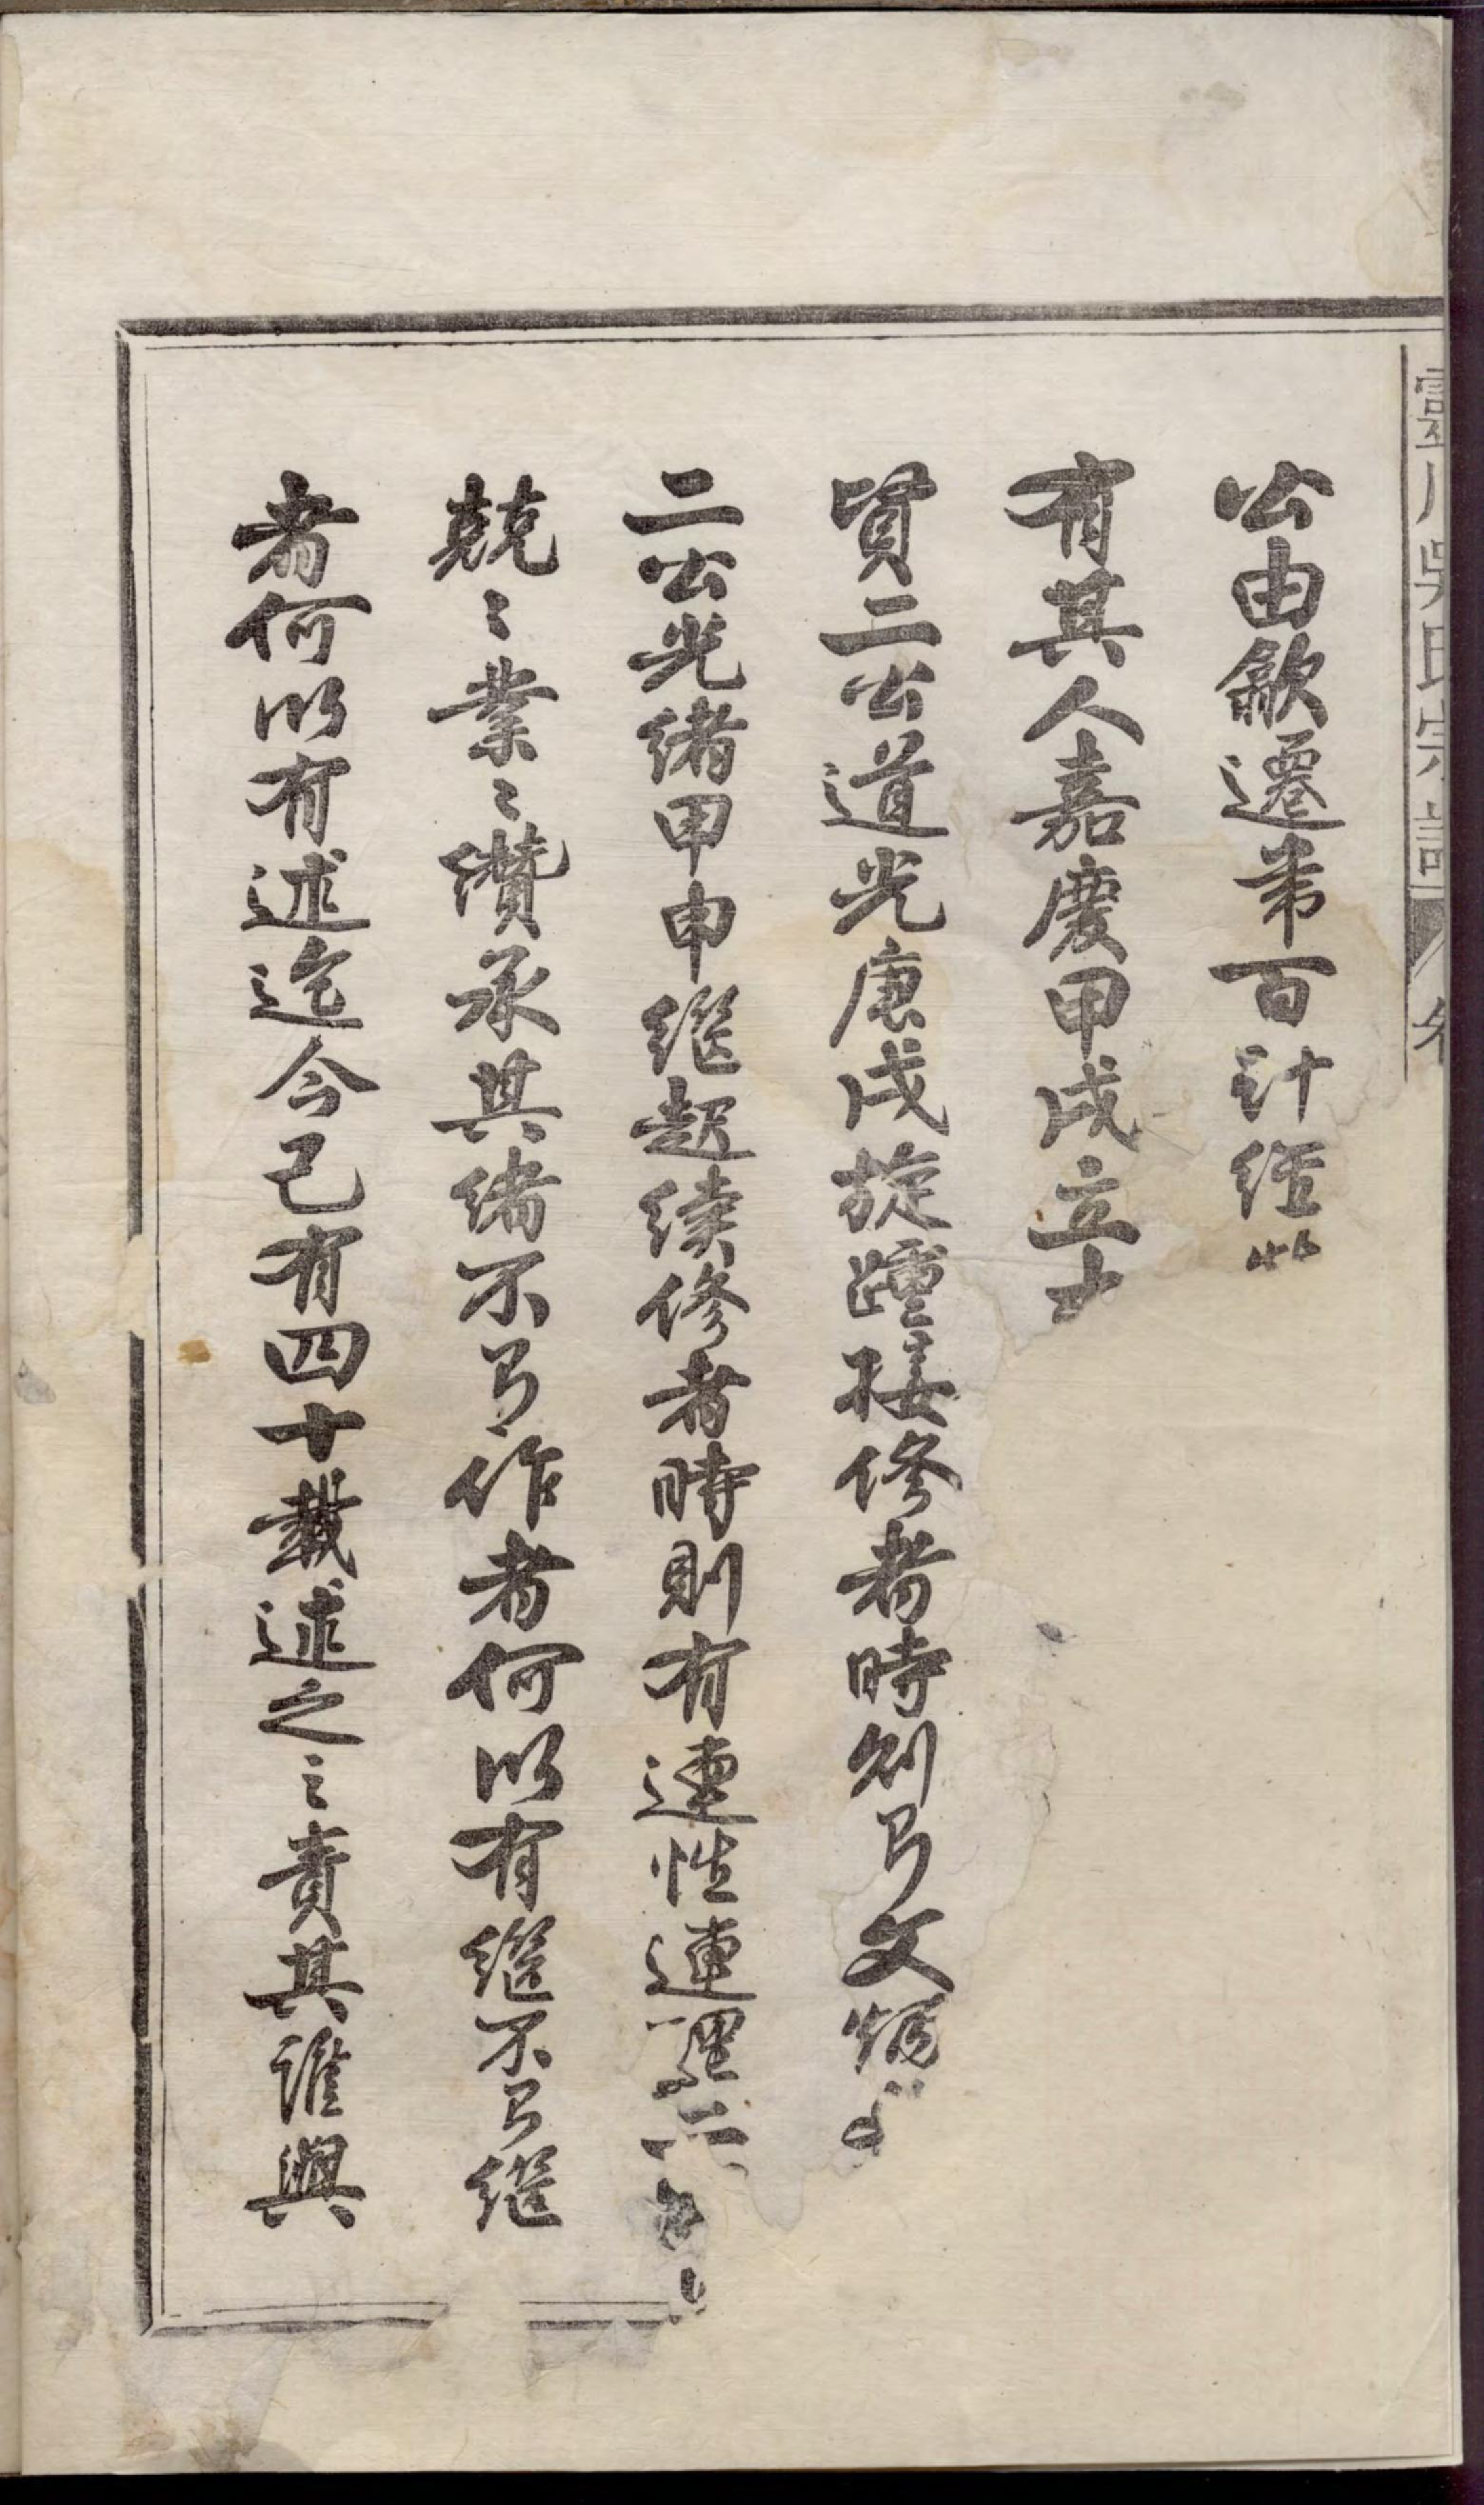 公由歙遷芾百計經
有其人嘉慶甲戌立
賢二公道光庚戌旋踵接修者時則有文炳
二公光緒甲申繼起續修者時則有連性連理二公
兢〻業〻纘承其緒不有作者何以有繼不有繼
者何以有述迄今已有四十載述之之責其誰與
吳氏宗譜